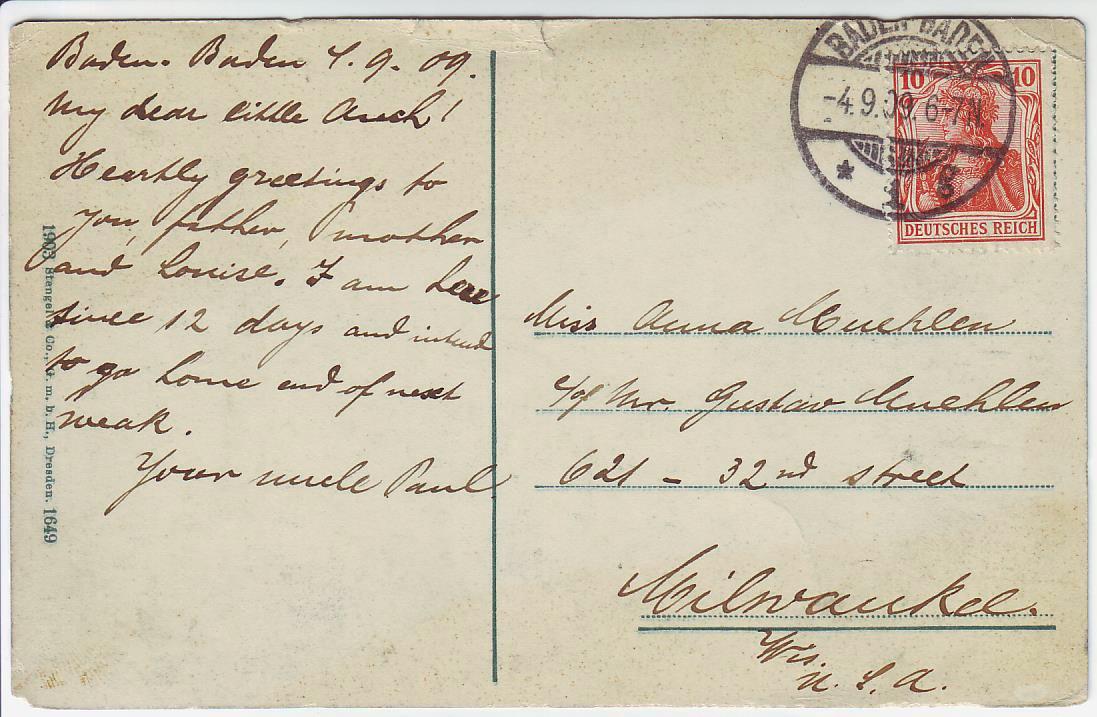 Baden-Baden 4.9.09.
My dear little Anch!
Heartly greetings to
you, father, mother
and Louise. I am here
since 12 days and intend
to go home end of next
weak.
Your uncle Paul.
1903 Stengel & Co., G. m. b. H., Dresden. 1649
BADEN-BADEN
-4.9.09. 6-7N.
* 1
10 10
DEUTSCHES REICH
Miss Anna Muehlen
c/of Mr. Gustav Muehlen
621 - 32nd street
Milwaukee.
Wis.
U. S. A.